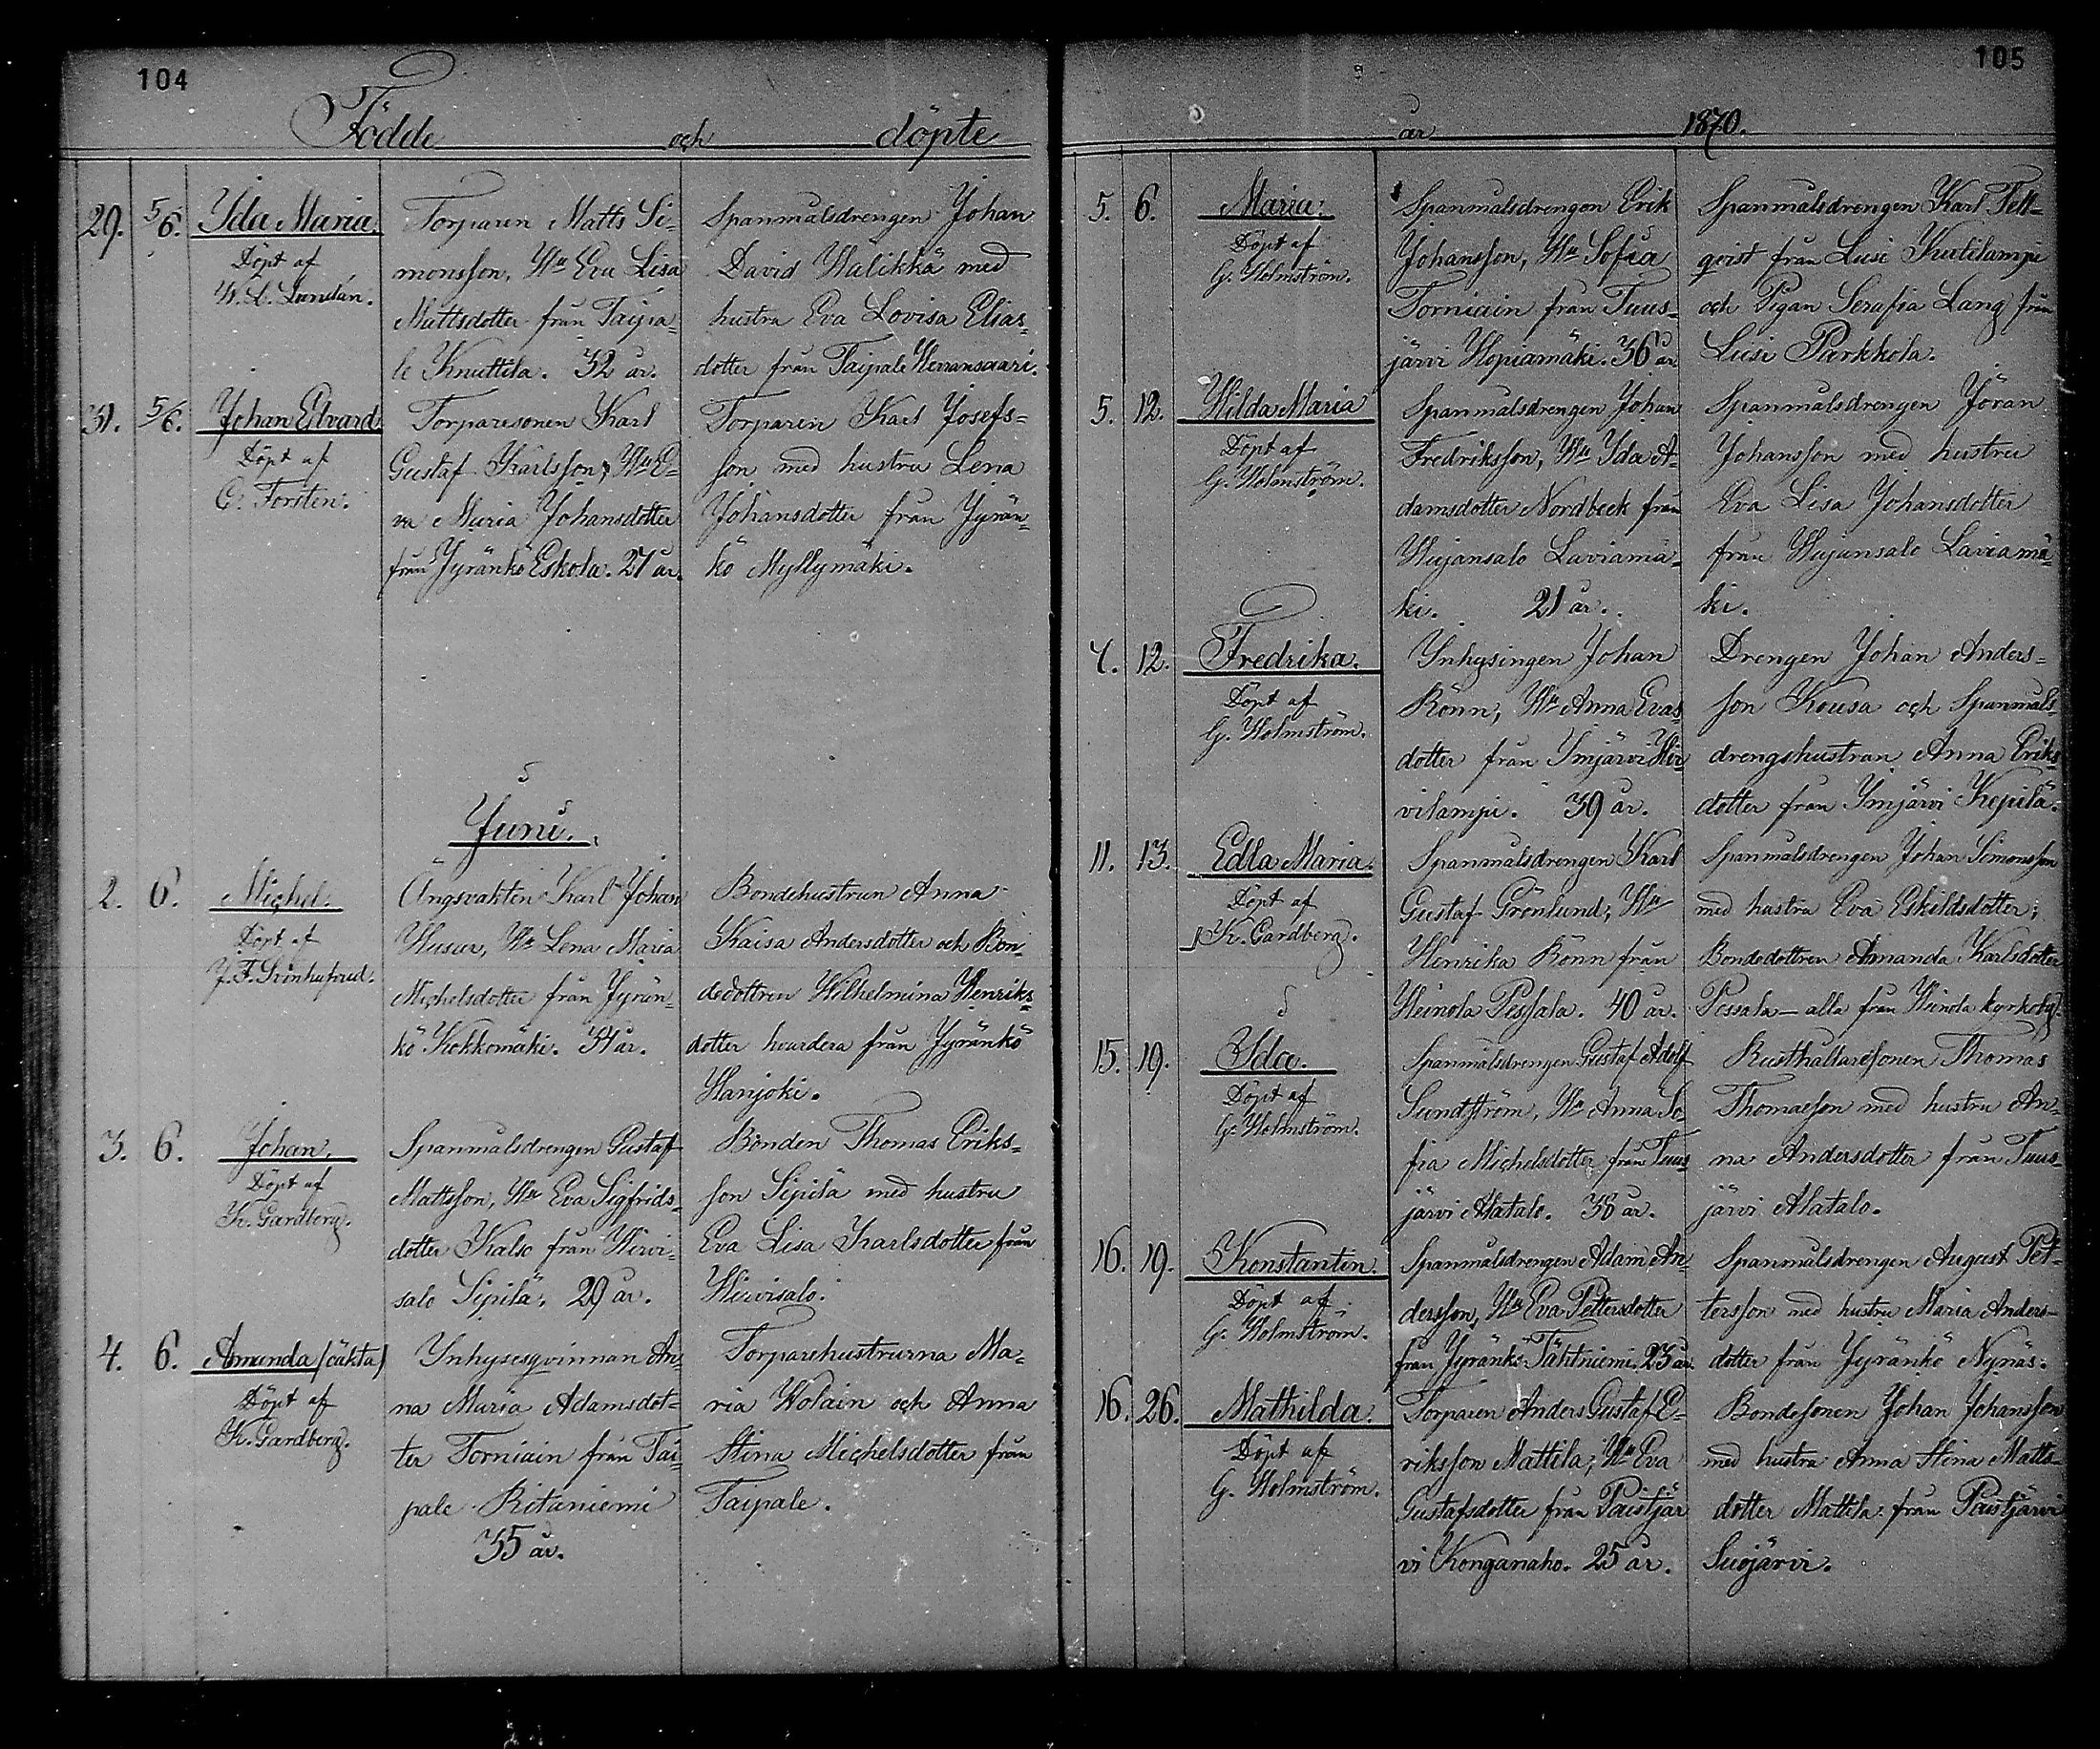 104
Födde och döpte
29. 5/6. Ida Maria.
Döpt af
Torparen Matts Si-
monsson, Hu Eva Lisa
Mattsdotter från Taipa-
le Knuttila. 32 år.
Spanmålsdrengen Johan
David Walikkä med
hustru Eva Lovisa Elias-
dotter från Taipale Hevransaari.
31. 5/6. Johan Edvard.
Döpt af
C. Forstén.
Torparesonen Karl
Gustaf Karlsson, Hu E-
va Maria Johansdotter
från Jyränkö Eskola. 27 år.
Torparen Karl Josefs-
son med hustru Lena
Johansdotter från Jyrän-
kö Myllymäki.
Juni.
2. 6. Michel.
Döpt af
J. F. Svinhufvud.
Ängsvakten Karl Johan
Husar, Hu Lena Maria
Michelsdotter från Jyrän-
kö Kokkomäki. 34 år.
Bondehustrun Anna
Kaisa Andersdotter och Bon-
dedottren Wilhelmina Henriks-
dotter hvardera från Jyränkö
Harjoki.
3. 6. Johan.
Döpt af
K. Gardberg.
Spanmålsdrengen Gustaf
Mattsson, Hu Eva Sigfrids-
dotter Kalso från Hirvi-
salo Sipilä. 29 år.
Bonden Thomas Eriks-
son Sipilä med hustru
Eva Lisa Karlsdotter från
Hirvisalo.
4. 6. Amanda (oäkta)
Döpt af
K. Gardberg.
Inhysesqvinnan An-
na Maria Adamsdot-
ter Torniain från Tai-
pale Ritaniemi
35 år.
Torparehustrurna Ma-
ria Wolain och Anna
Stina Michelsdotter från
Taipale.
105
år 1870.
5. 6. Maria.
Döpt af
G. Holmström.
Spanmålsdrengen Erik
Johansson, Hu Sofia
Torniain från Tuus-
järvi Hopiamäki. 36 år
Spanmålsdrengen Karl Fell-
qvist från Lusi Kutilampi
och Pigan Serafia Lang från
Lusi Parkkola.
5. 12. Hilda Maria
Döpt af
G. Holmström.
Spanmålsdrengen Johan
Fredriksson, Hu Ida A-
damsdotter Nordbeck från
Wujansalo Laviamä-
ki. 21 år.
Spanmålsdrengen Jöran
Johansson med hustru
Eva Lisa Johansdotter
från Wujansalo Laviamä-
ki.
7. 12. Fredrika.
Döpt af
G. Holmström.
Inhysingen Johan
Rönn, Hu Anna Evas-
dotter från Imjärvi Hir-
vilampi. 39 år.
Drengen Johan Anders-
son Kousa och Spanmåls-
drengshustrun Anna Eriks-
dotter från Imjärvi Kepilä.
11. 13. Edla Maria.
Döpt af
K. Gardberg.
Spanmålsdrengen Karl
Gustaf Grönlund, Hu
Henrika Rönn från
Heinola Pessala. 40 år.
Spanmålsdrengen Johan Simonsson
med hustru Eva Eskildsdotter;
Bondedottren Amanda Karlsdotter
Pessala — alla från Heinola kyrkoby.
15. 19. Ida.
Döpt af
G. Holmström.
Spanmålsdrengen Gustaf Adolf
Sundström, Hu Anna So-
fia Michelsdotter från Tuus-
järvi Alatalo. 38 år.
Rusthållaresonen Thomas
Thomasson med hustru An-
na Andersdotter från Tuus-
järvi Alatalo.
16. 19. Konstantin.
Döpt af
G. Holmström.
Spanmålsdrengen Adam An-
dersson, Hu Eva Pettersdotter
från Jyränkö Tähtniemi. 23 år.
Spanmålsdrengen August Pet-
tersson med hustru Maria Anders-
dotter från Jyränkö Nynäs.
16. 26. Mathilda.
Döpt af
G. Holmström.
Torparen Anders Gustaf E-
riksson Mattila, Hu Eva
Gustafsdotter från Paistjär
vi Konganaho. 25 år.
Bondesonen Johan Johansson
med hustru Anna Stina Matts-
dotter Mattila från Paistjärvi
Suojärvi.